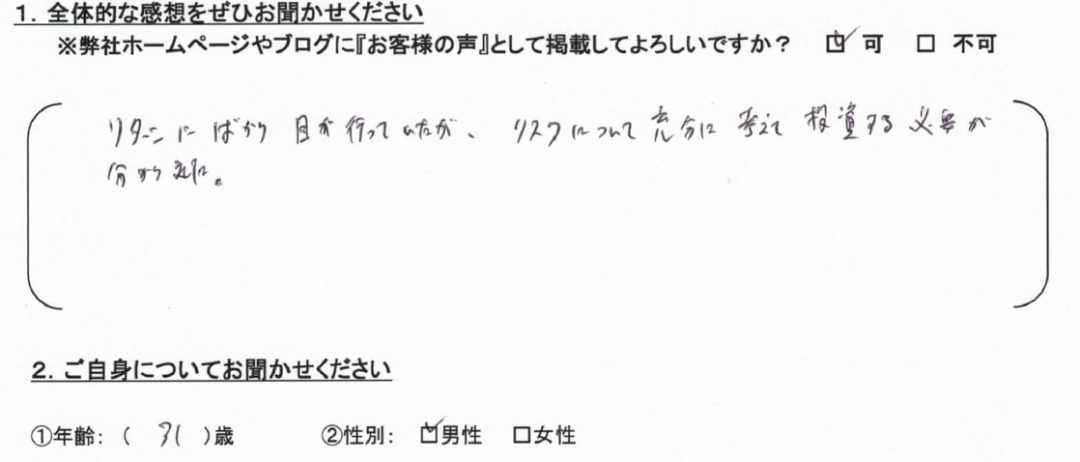 1. 全体的な感想をぜひお聞かせください
※弊社ホームページやブログに『お客様の声』として掲載してよろしいですか? ☑ 可 □ 不可
リターンにばかり目が行っていたが、リスクについて充分に考えて投資する必要が
分かった。
2. ご自身についてお聞かせください
①年齢: ( 31 )歳 ②性別: ☑男性 □女性